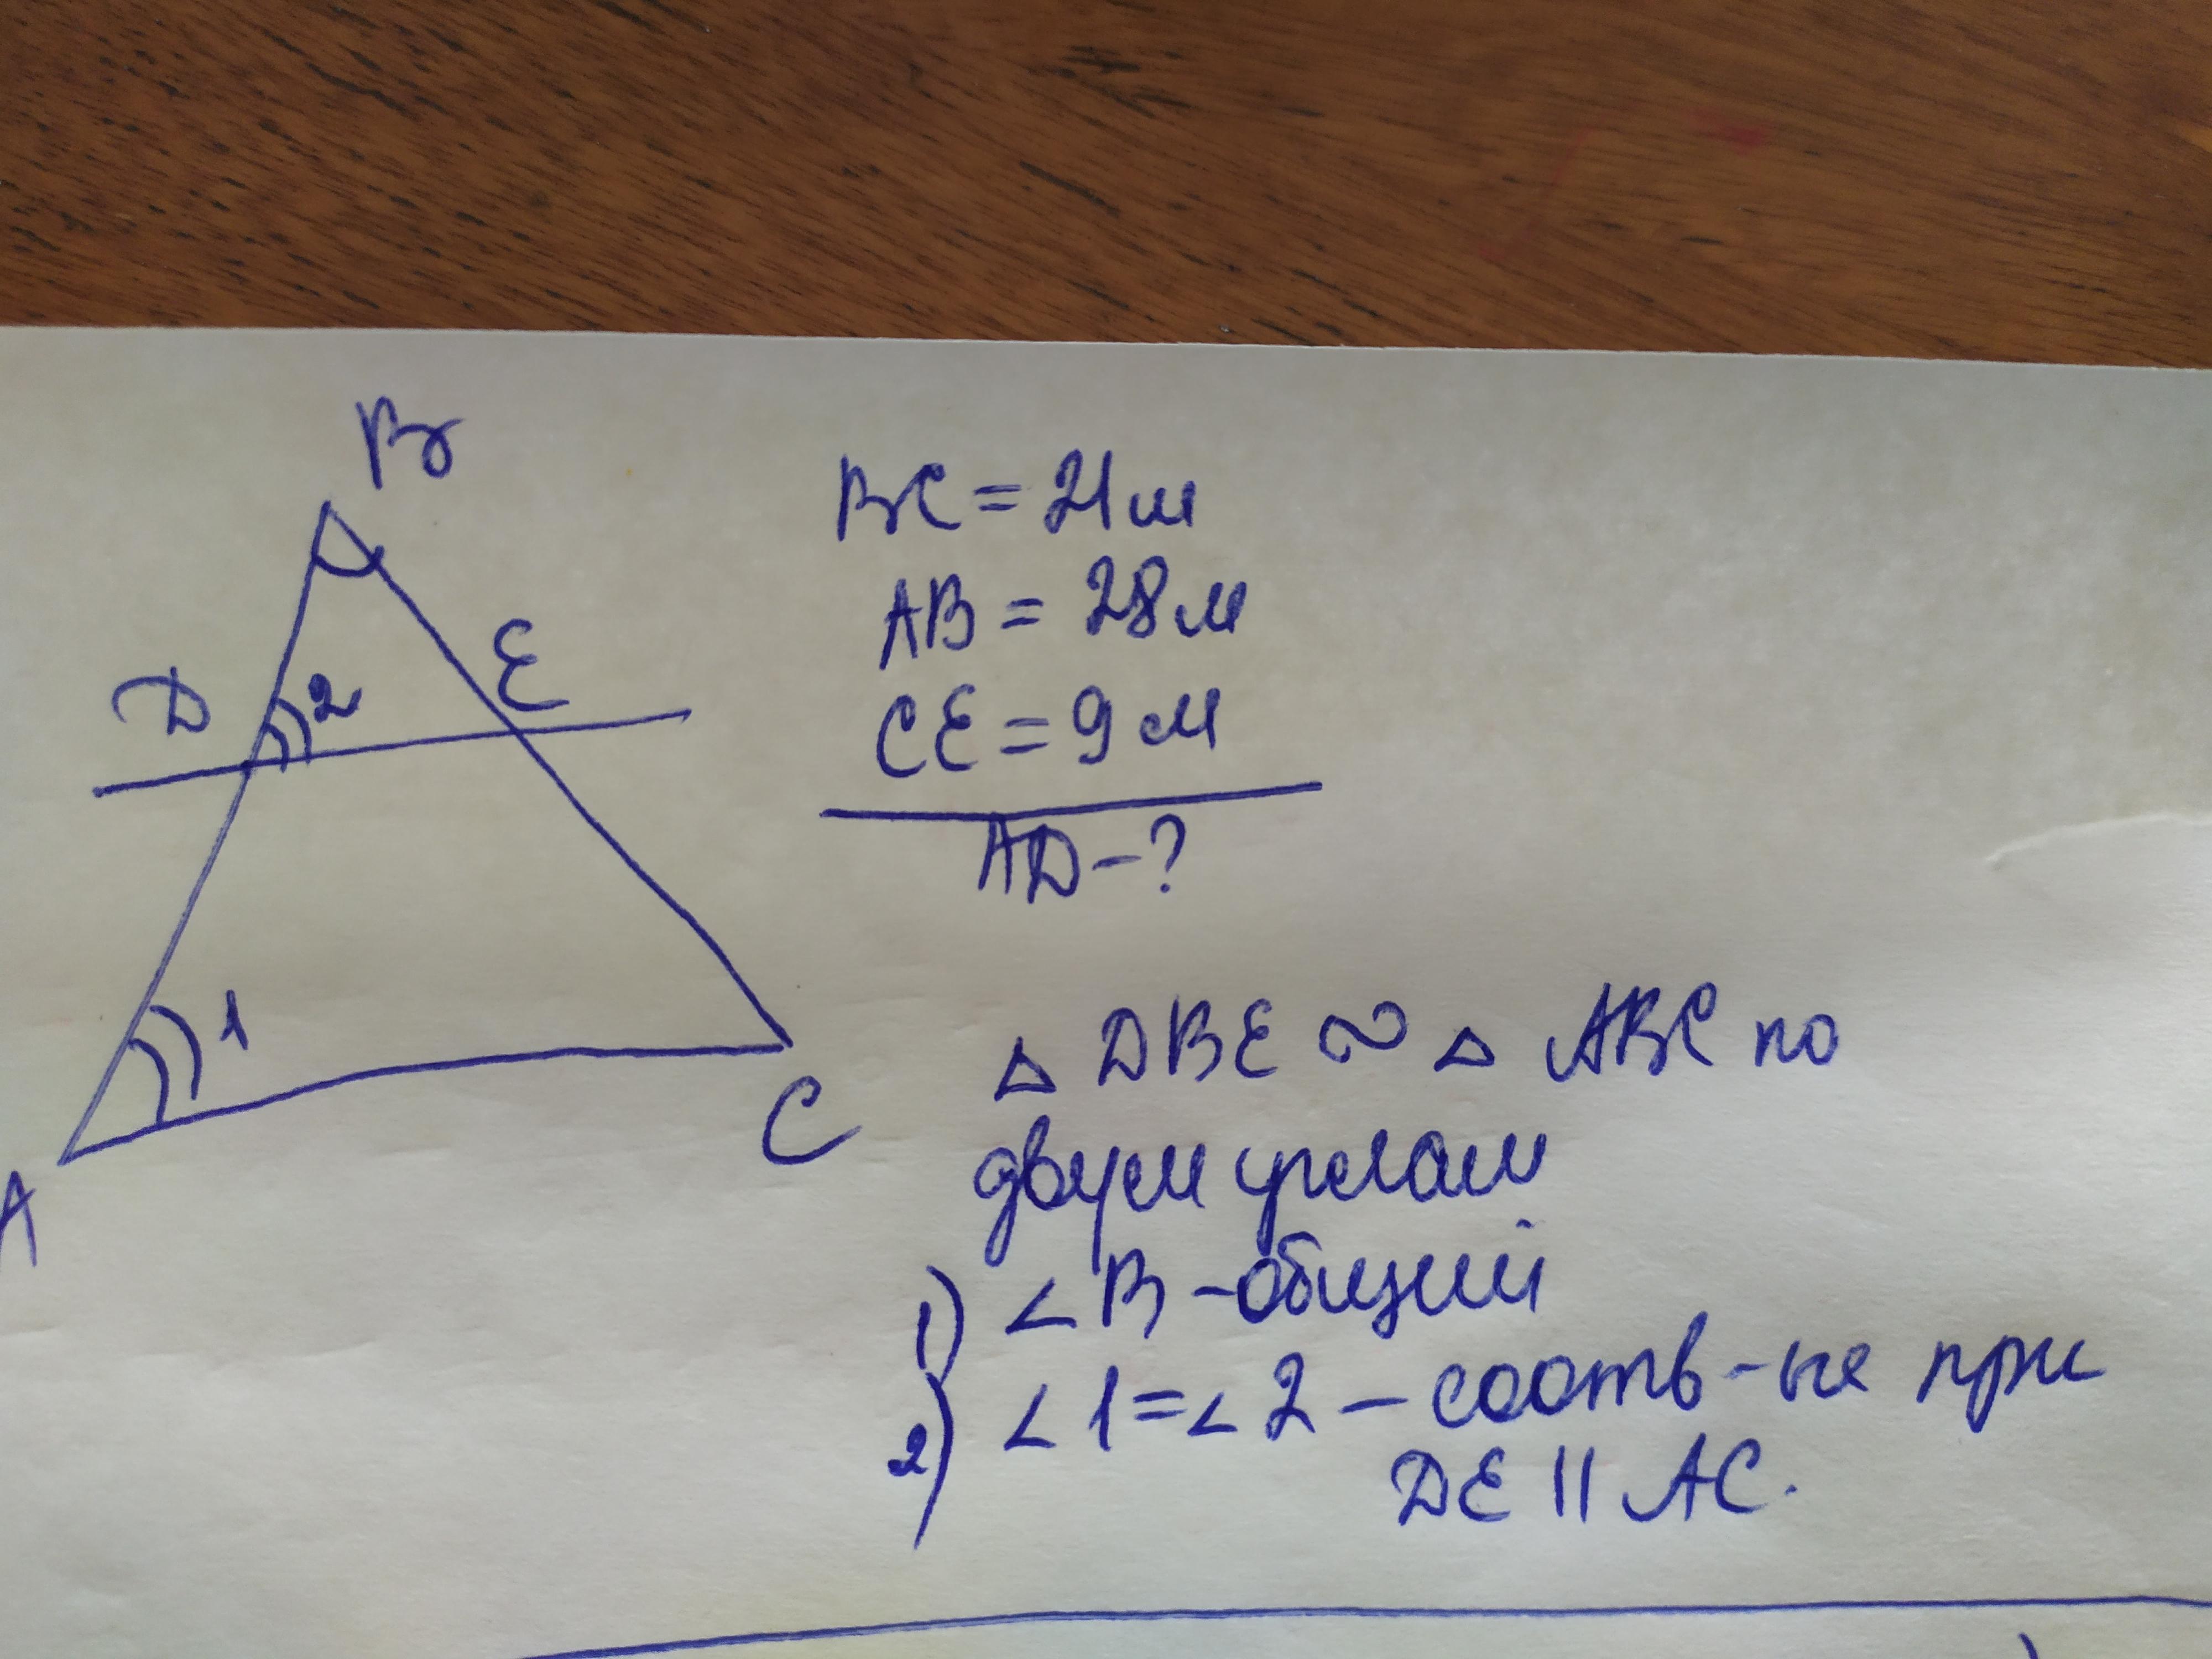 B
D
2
E
1
A
C
BC = 21 м
AB = 28 м
CE = 9 м
AD - ?
△ DBE ∾ △ ABC по
двум углам
1) ∠ B - общий
2) ∠ 1 = ∠ 2 - соотв-ые при
DE || AC.